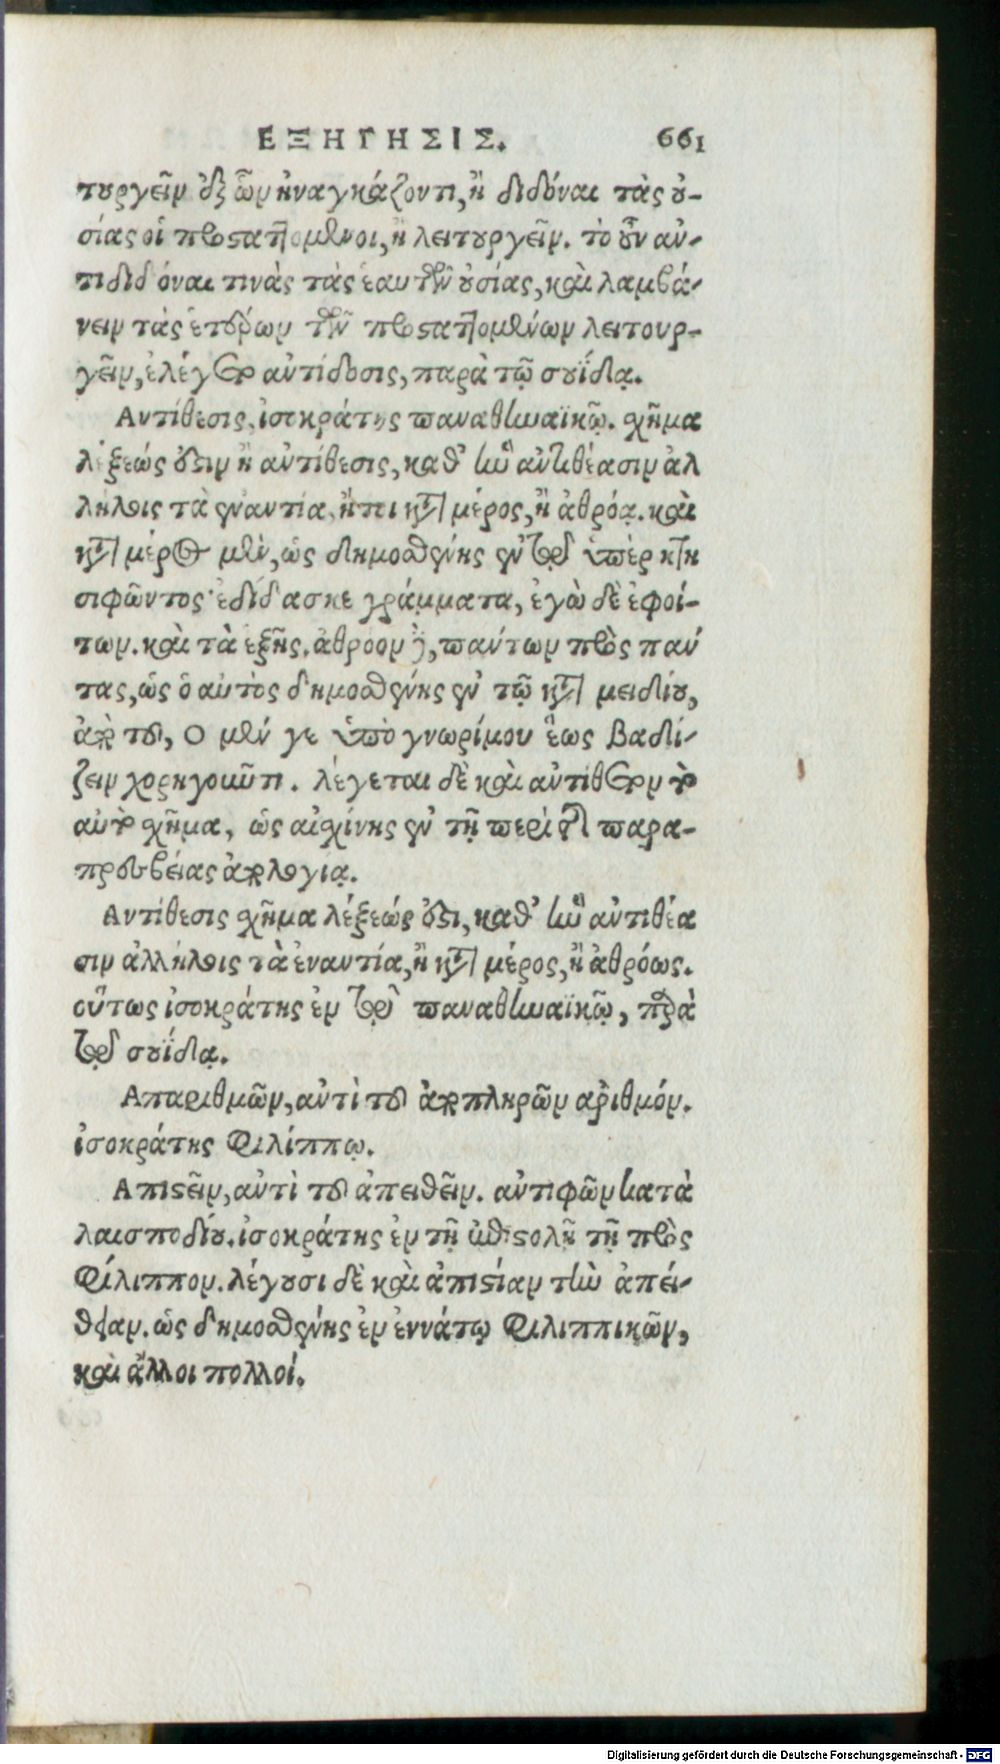 ΕΞΗΓΗΣΙΣ. 661
τουργεῖν ἐξ ὧν ἠναγκάζοντι, ἢ διδόναι τὰς οὐ-
σίας οἱ προσταττομένοι, ἢ λειτουργεῖν. τὸ οὖν ἀν-
τιδιδόναι τινὰς τὰς ἑαυτῶν οὐσίας, καὶ λαμβά-
νειν τὰς ἑτέρων τῶν προσταττομένων λειτουρ-
γεῖν, ἐλέγετο ἀντίδοσις, παρὰ τῷ σουΐδᾳ.
Αντίθεσις. ἰσοκράτης παναθηναϊκῷ. σχῆμα
λέξεώς ἐστιν ἡ ἀντίθεσις, καθ' ἣν ἀντιθέασιν ἀλ
λήλοις τὰ ἐναντία, ἤτι κατὰ μέρος, ἢ ἀθρόᾳ. καὶ
κατὰ μέρος μὲν, ὡς δημοσθένης ἐν τῷ ὑπὲρ κτη
σιφῶντος· ἐδίδασκε γράμματα, ἐγὼ δὲ ἐφοί-
των. καὶ τὰ ἑξῆς. ἀθρόον δὲ, πάντων πρὸς πάν
τας, ὡς ὁ αὐτὸς δημοσθένης ἐν τῷ κατὰ μειδίου,
ἀπὸ τοῦ, Ο μέν γε ὑπὸ γνωρίμου ἕως βαδί-
ζειν χορηγοῦντι. λέγεται δὲ καὶ ἀντίθετον τὸ
αὐτὸ σχῆμα, ὡς αἰσχίνης ἐν τῇ περὶ τῆς παρα-
πρεσβείας ἀπολογίᾳ.
Αντίθεσις σχῆμα λέξεώς ἐστι, καθ' ἣν ἀντιθέα
σιν ἀλλήλοις τὰ ἐναντία, ἢ κατὰ μέρος, ἢ ἀθρόως.
οὕτως ἰσοκράτης ἐν τῷ παναθηναϊκῷ, παρὰ
τῷ σουΐδᾳ.
Απαριθμῶν, ἀντὶ τοῦ ἀποπληρῶν ἀριθμόν.
ἰσοκράτης Φιλίππῳ.
Απιστεῖν, ἀντὶ τοῦ ἀπειθεῖν. ἀντιφῶν κατὰ
λαισποδίου. ἰσοκράτης ἐν τῇ ἐπιστολῇ τῇ πρὸς
Φίλιππον. λέγουσι δὲ καὶ ἀπιστίαν τὴν ἀπεί-
θειαν. ὡς δημοσθένης ἐν ἐννάτῳ Φιλιππικῶν,
καὶ ἄλλοι πολλοί.
Digitalisierung gefördert durch die Deutsche Forschungsgemeinschaft - DFG